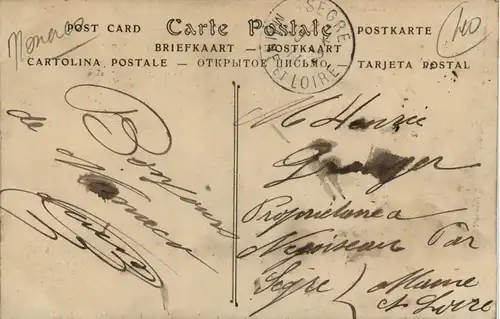 Monaco
40
POST CARD Carte Postale POSTKARTE
BRIEFKAART — POSTKAART
CARTOLINA POSTALE — ОТКРЫТОЕ ПИСЬМО — TARJETA POSTAL
SEGRÉ
ET LOIRE
Bonjour
de Monaco
M Henri
Propriétaire a
Noyoiseau Par
Segré
Maine
et Loire